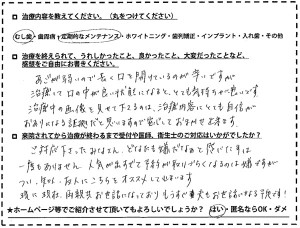 □ 治療内容を教えてください。(丸をつけてください)
むし歯・歯周病・定期的なメンテナンス・ホワイトニング・歯列矯正・インプラント・入れ歯・その他
□ 治療を終えられて、うれしかったこと、良かったこと、大変だったことなど、
感想をご自由にお書きください。
あごが弱いので長く口を開けているのが辛いですが
治療して口の中が良い状態になると、とても気持ちが良いです
治療中の画像を見せて下さるのは、治療内容にとても自信が
おありになる証拠だと思いますので安心してお任せ出来ます
□ 来院されてから治療が終わるまで受付や医師、衛生士のご対応はいかがでしたか?
ご対応下さったみなさん、どなたも嫌だなぁと感じた事は
一度もありません 人気が出すぎて予約が取りづらくなるのは嫌ですが
つい、知人・友人にこちらをオススメしてしまいます
既に現在、両親共お世話になっており もうすぐ妻もお世話になる予定です!
★ホームページ等でご紹介させて頂いてもよろしいでしょうか? はい・匿名ならOK・ダメ